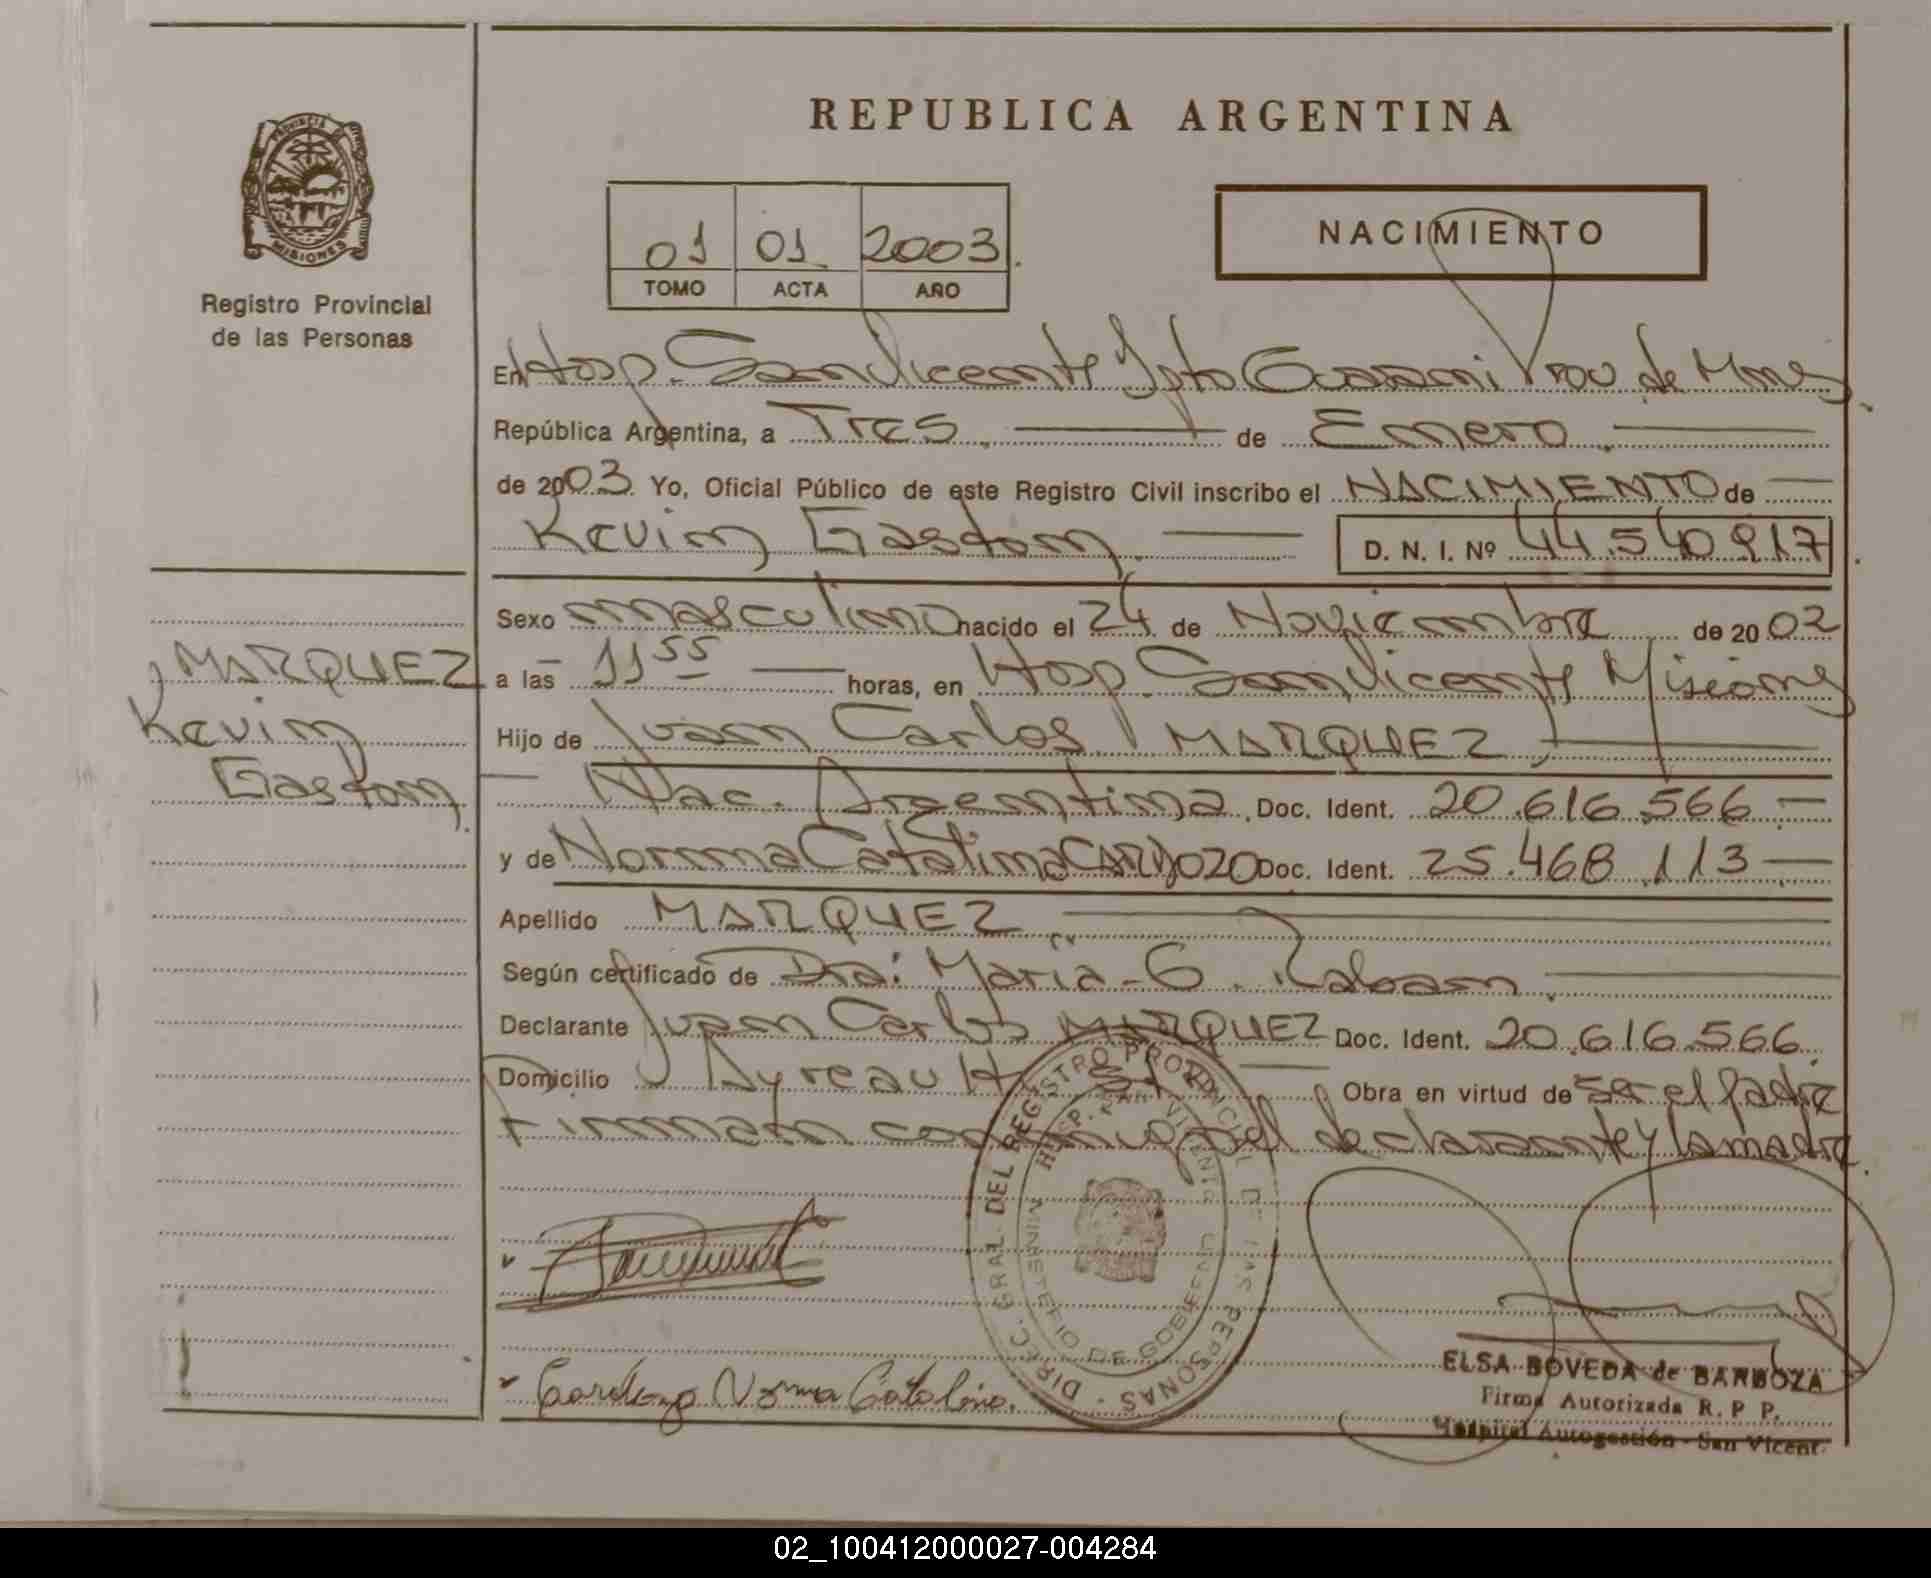 REPUBLICA ARGENTINA
PROVINCIA DE MISIONES
Registro Provincial
de las Personas
01 01 2003.
TOMO ACTA AÑO
NACIMIENTO
En Hosp. San Vicente Dpto Guarani Prov de Mnes
República Argentina, a Tres. de Enero.
de 2003. Yo, Oficial Público de este Registro Civil inscribo el NACIMIENTO de
Kevin Gaston. D. N. I. Nº 44.540 917.
MARQUEZ
Kevin
Gaston.
Sexo masculino nacido el 24 de Noviembre de 2002
a las 11 55 horas, en Hosp. San Vicente Misiones
Hijo de Juan Carlos MARQUEZ,
Nac. Argentina. Doc. Ident. 20.616.566.
y de Norma Catalina CARDOZO Doc. Ident. 25.468.113
Apellido MARQUEZ
Según certificado de Dra: Maria G.
Declarante Juan Carlos MARQUEZ Doc. Ident. 20.616.566.
Domicilio Obra en virtud de ser el padre
Firman conmigo el declarante y la madre.
DIREC. GRAL. DEL REGISTRO PROVINCIAL DE LAS PERSONAS
HOSP. SAN VICENTE
MINISTERIO DE GOBIERNO
Cardozo Norma Catalina.
ELSA BOVEDA de BARBOZA
Firma Autorizada R. P P.
Hospital Autogestión - San Vicent.
02_100412000027-004284